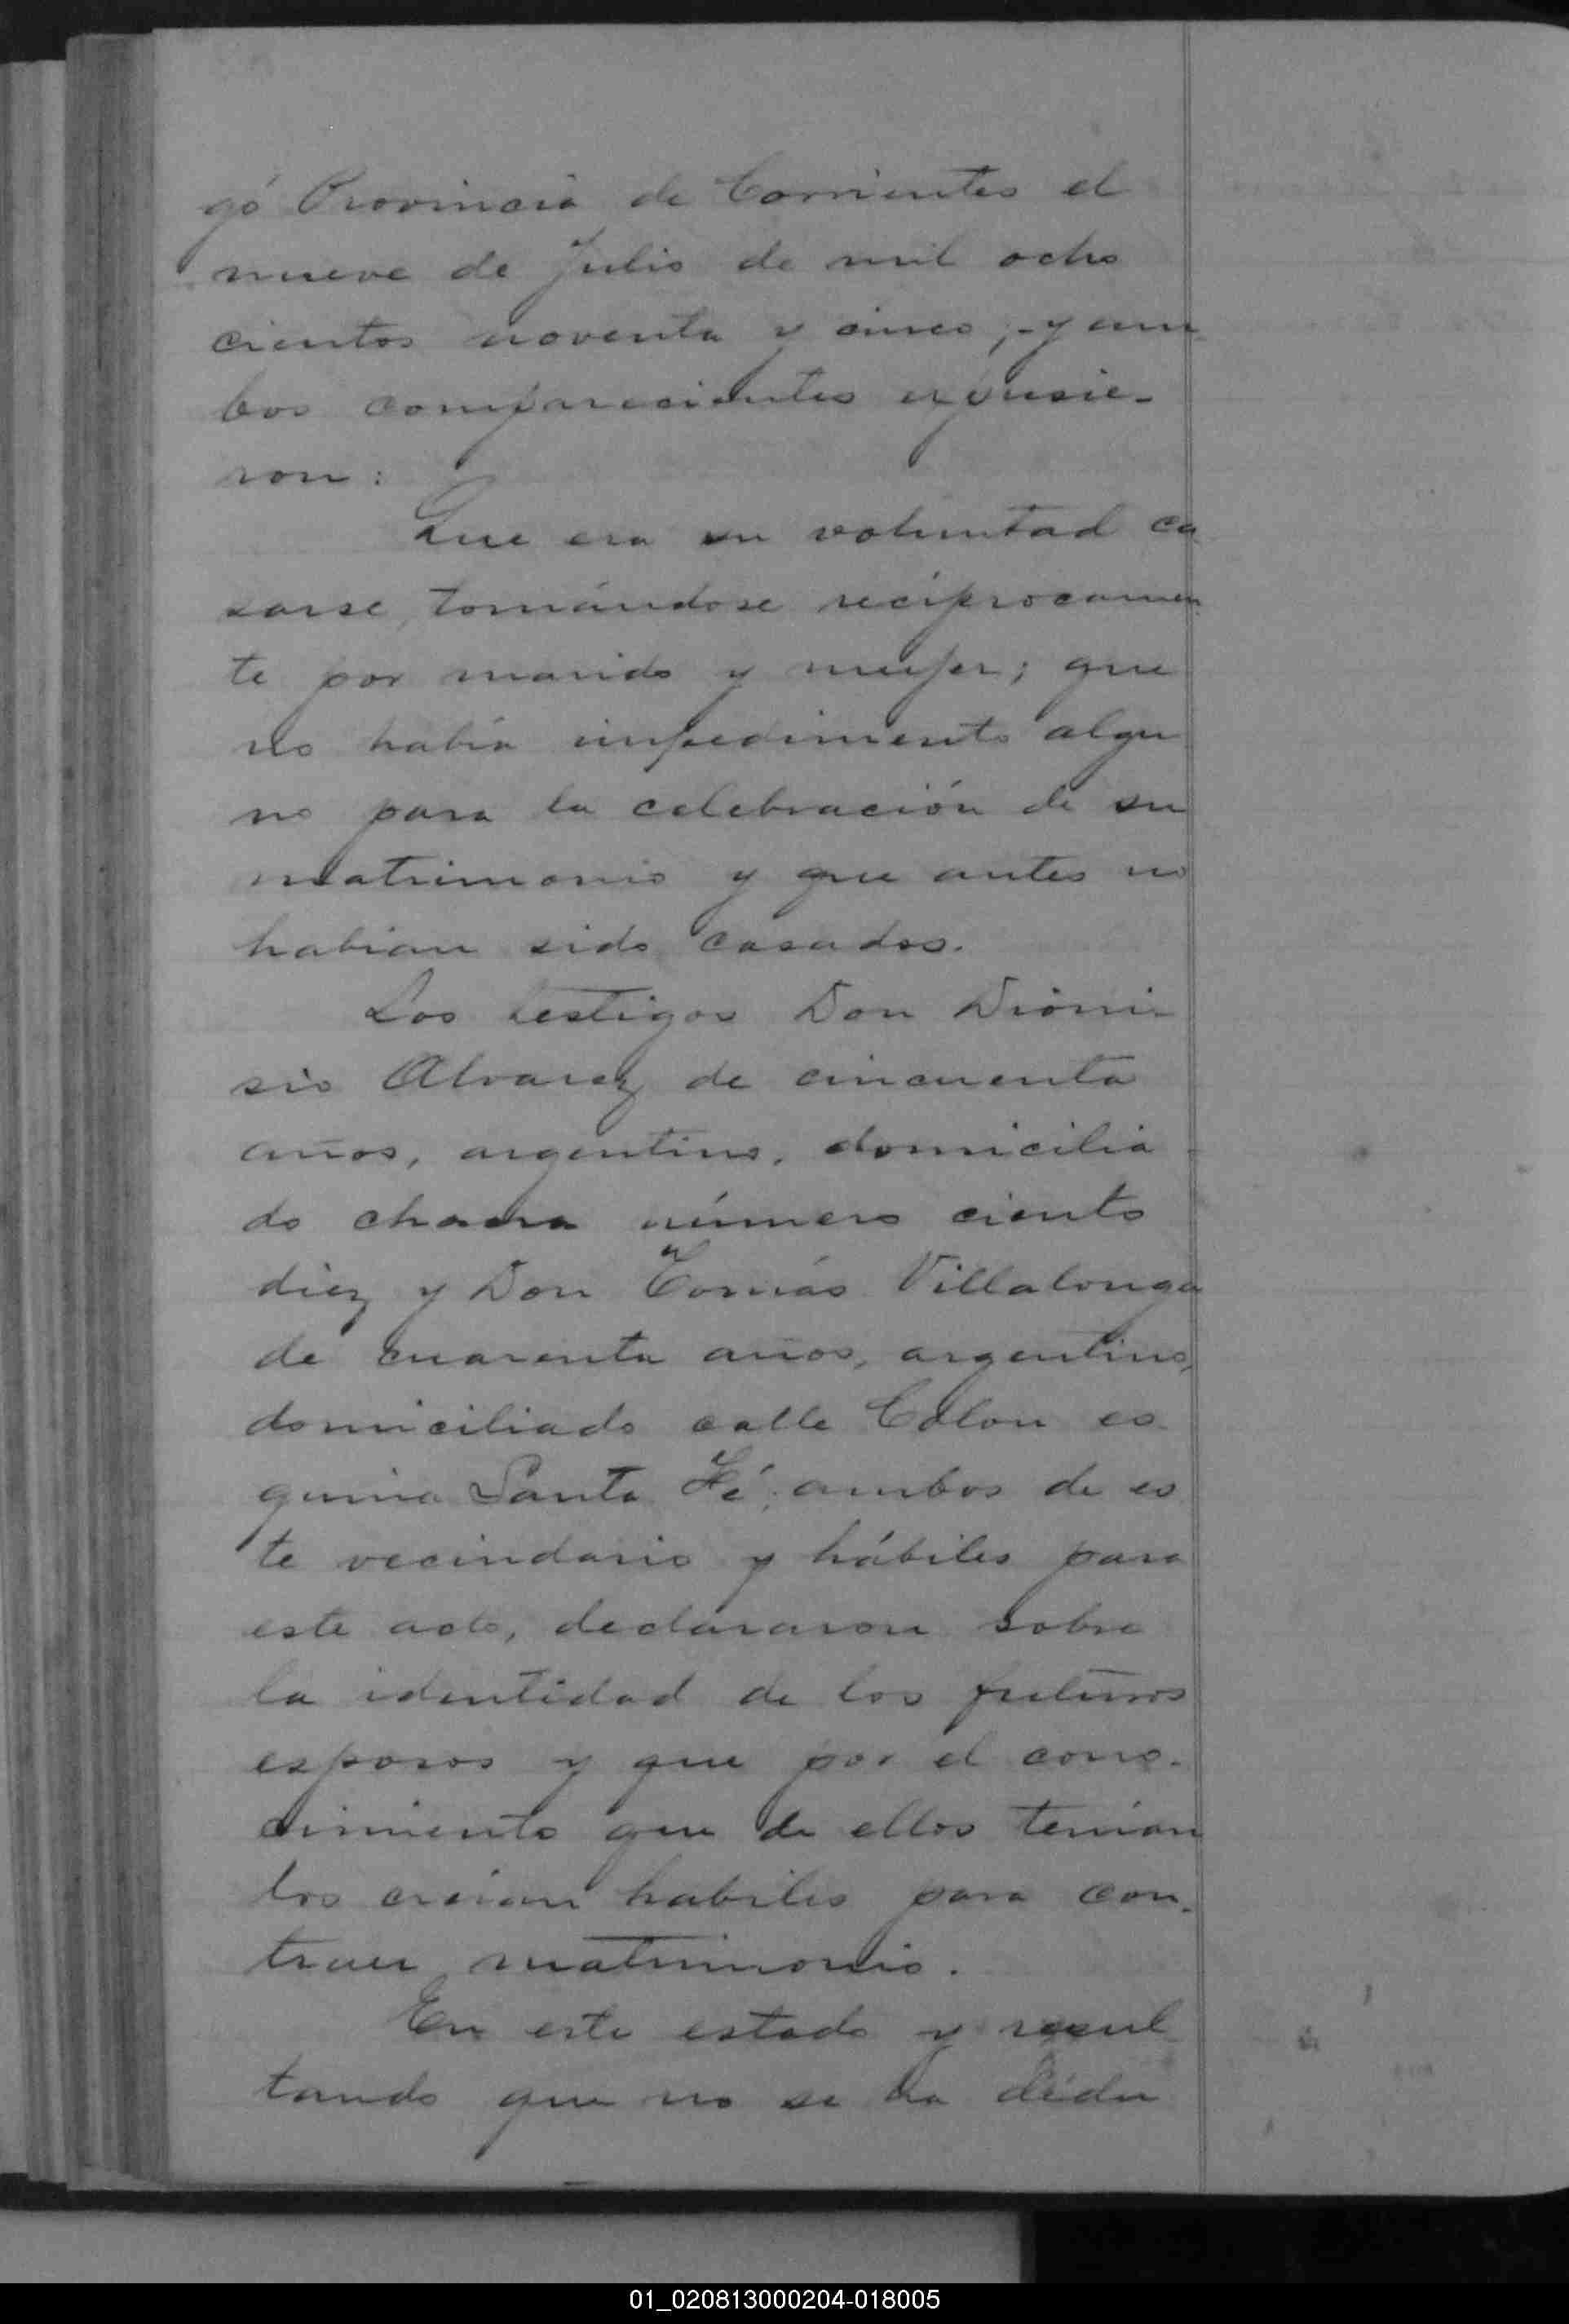 gó Provincia de Corrientes el
nueve de Julio de mil ocho
cientos noventa y cinco; - y am
bos comparecientes expusie-
ron:
Que era su voluntad ca
sarse, tomándose recíprocamen
te por marido y mujer; que
no había impedimento algu
no para la celebración de su
matrimonio y que antes no
habian sido casados.
Los testigos Don Dioni-
sio Alvarez de cincuenta
años, argentino, domicilia
do chacra número ciento
diez y Don Tomás Villalonga
de cuarenta años, argentino,
domiciliado calle Colon es
quina Santa Fé, ambos de es
te vecindario y hábiles para
este acto, declararon sobre
la identidad de los futuros
esposos y que por el cono-
cimiento que de ellos tenian
los creian habiles para con-
traer matrimonio.
En este estado y resul
tando que no se ha dedu
01_020813000204-018005